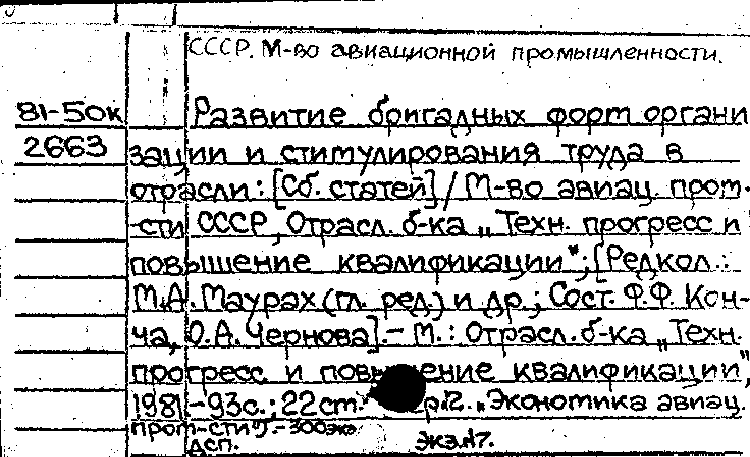 СССР. М-во авиационной промышленности.
81-50к Развитие бригадных форм органи
2663 зации и стимулирования труда в
отрасли: [Сб. статей] / М-во авиац. пром-
-сти СССР, Отрасл. б-ка „Техн. прогресс и
повышение квалификации"; [Редкол.:
М.А. Маурах (гл. ред.) и др.; Сост. Ф.Ф. Кон-
ча, О.А. Чернова]. - М.: Отрасл. б-ка „Техн.
прогресс и повышение квалификации",
1981. - 93с.; 22см. „Экономика авиац.
пром-сти"). - 300экз
ДСП. Экз.№7.